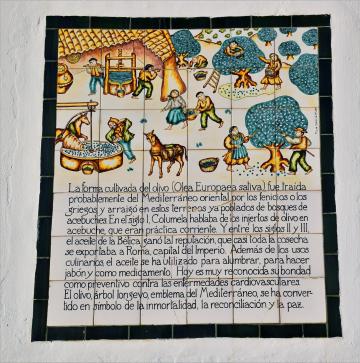 La forma cultivada del olivo (Olea Europaea saliva) fue traida
probablemente del Mediterráneo oriental por los fenicios o los
griegos y arraigó en estos terrenos ya poblados de bosques de
acebuches. En el siglo I, Columela hablaba de los injertos de olivo en
acebuche, que eran práctica corriente. Y entre los siglos II y III,
el aceite de la Bética ganó tal reputación, que casi toda la cosecha
se exportaba a Roma, capital del Imperio. Además de los usos
culinarios, el aceite se ha utilizado para alumbrar, para hacer
jabón y como medicamento. Hoy es muy reconocida su bondad
como preventivo contra las enfermedades cardiovasculares.
El olivo, árbol longevo, emblema del Mediterráneo, se ha conver-
tido en símbolo de la inmortalidad, la reconciliación y la paz.